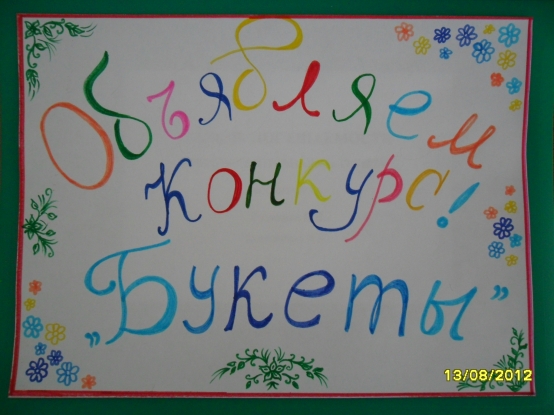 Объявляем
конкурс!
„Букеты”
13/08/2012